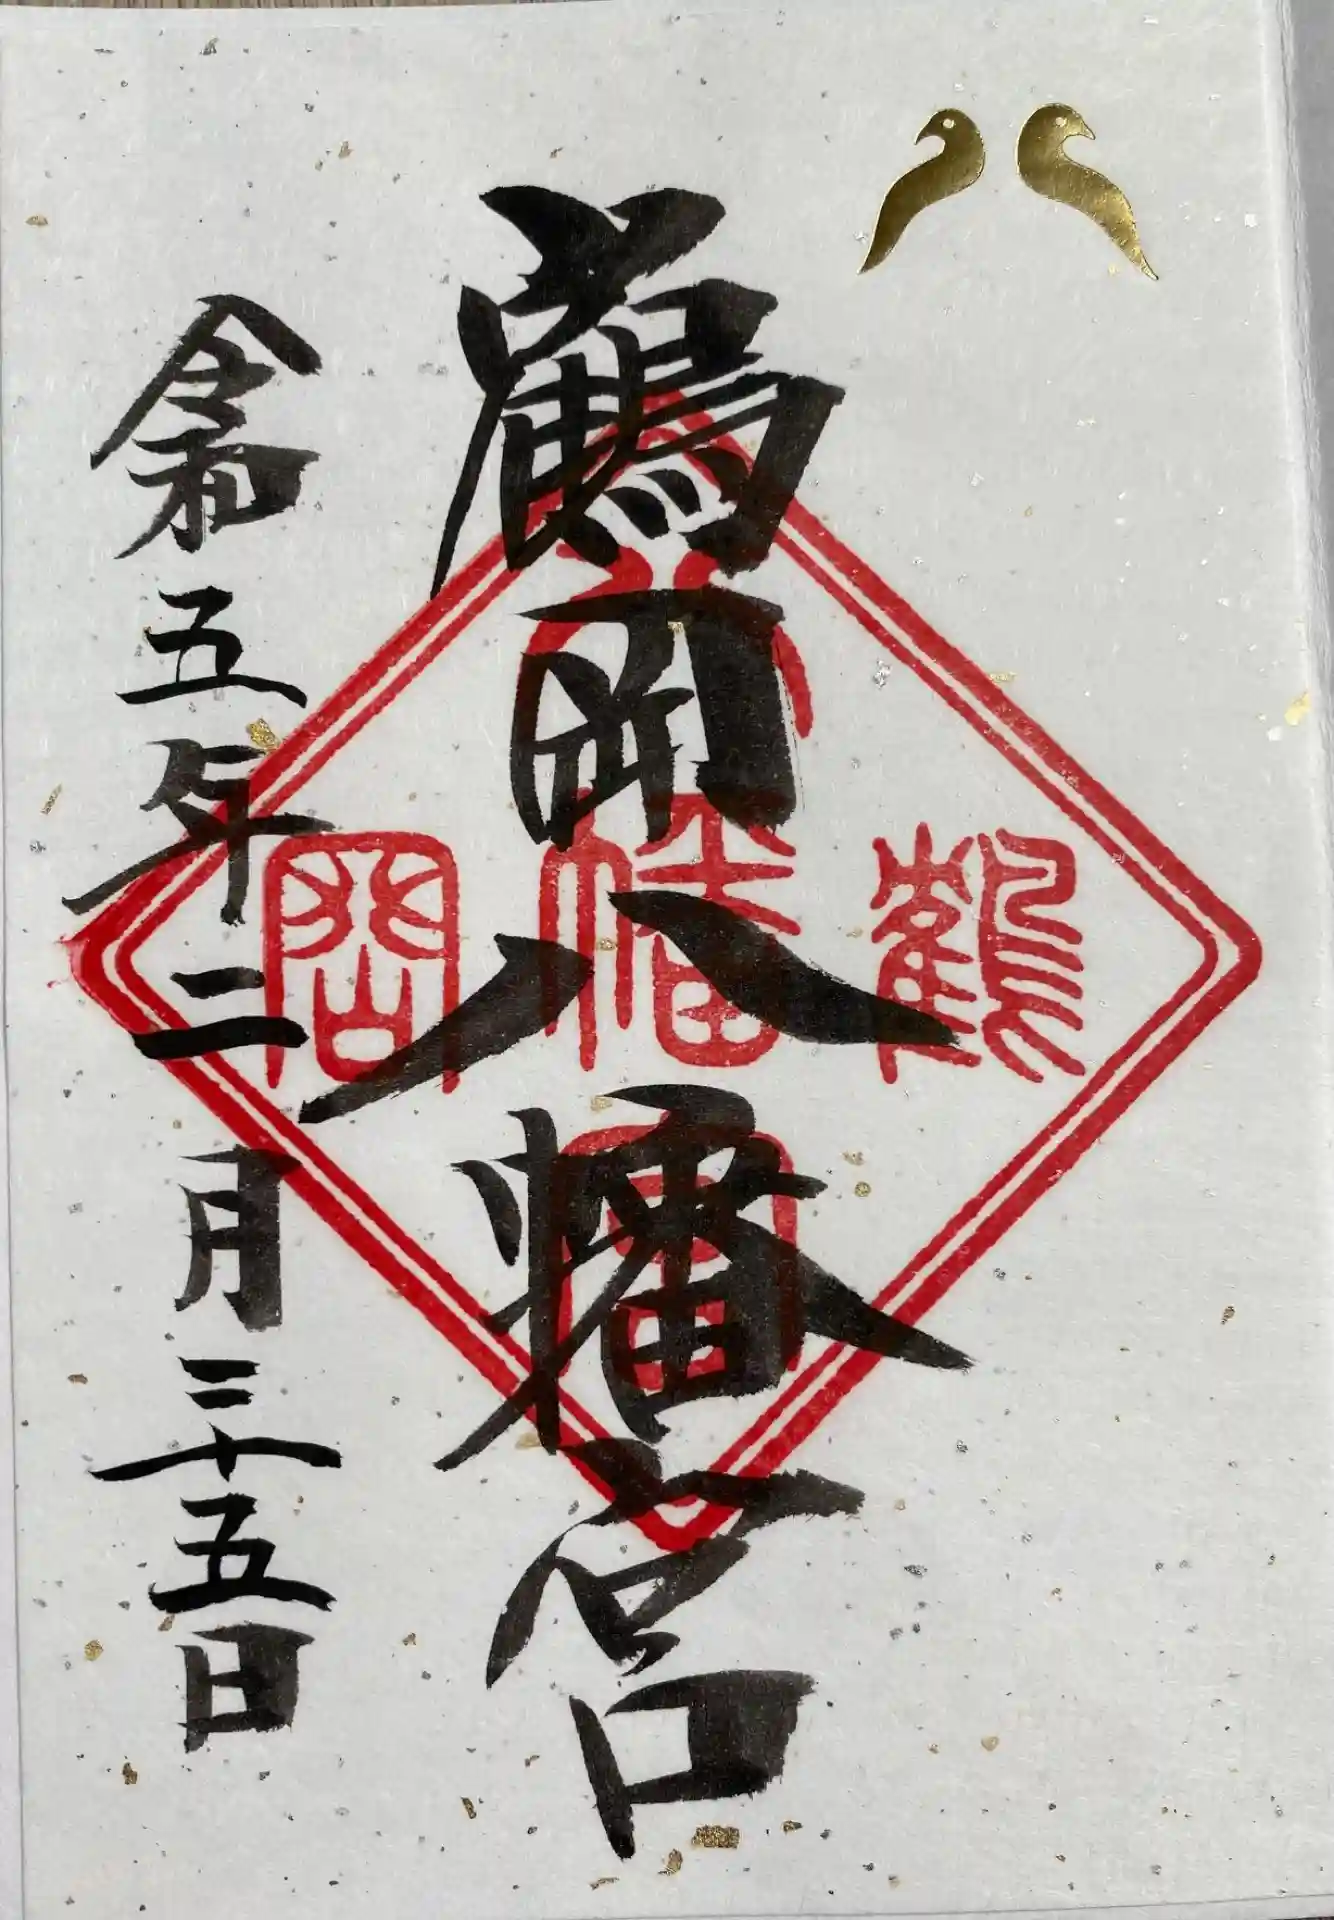 鶴岡八幡宮
令和五年二月二十五日
鶴岡
八幡宮